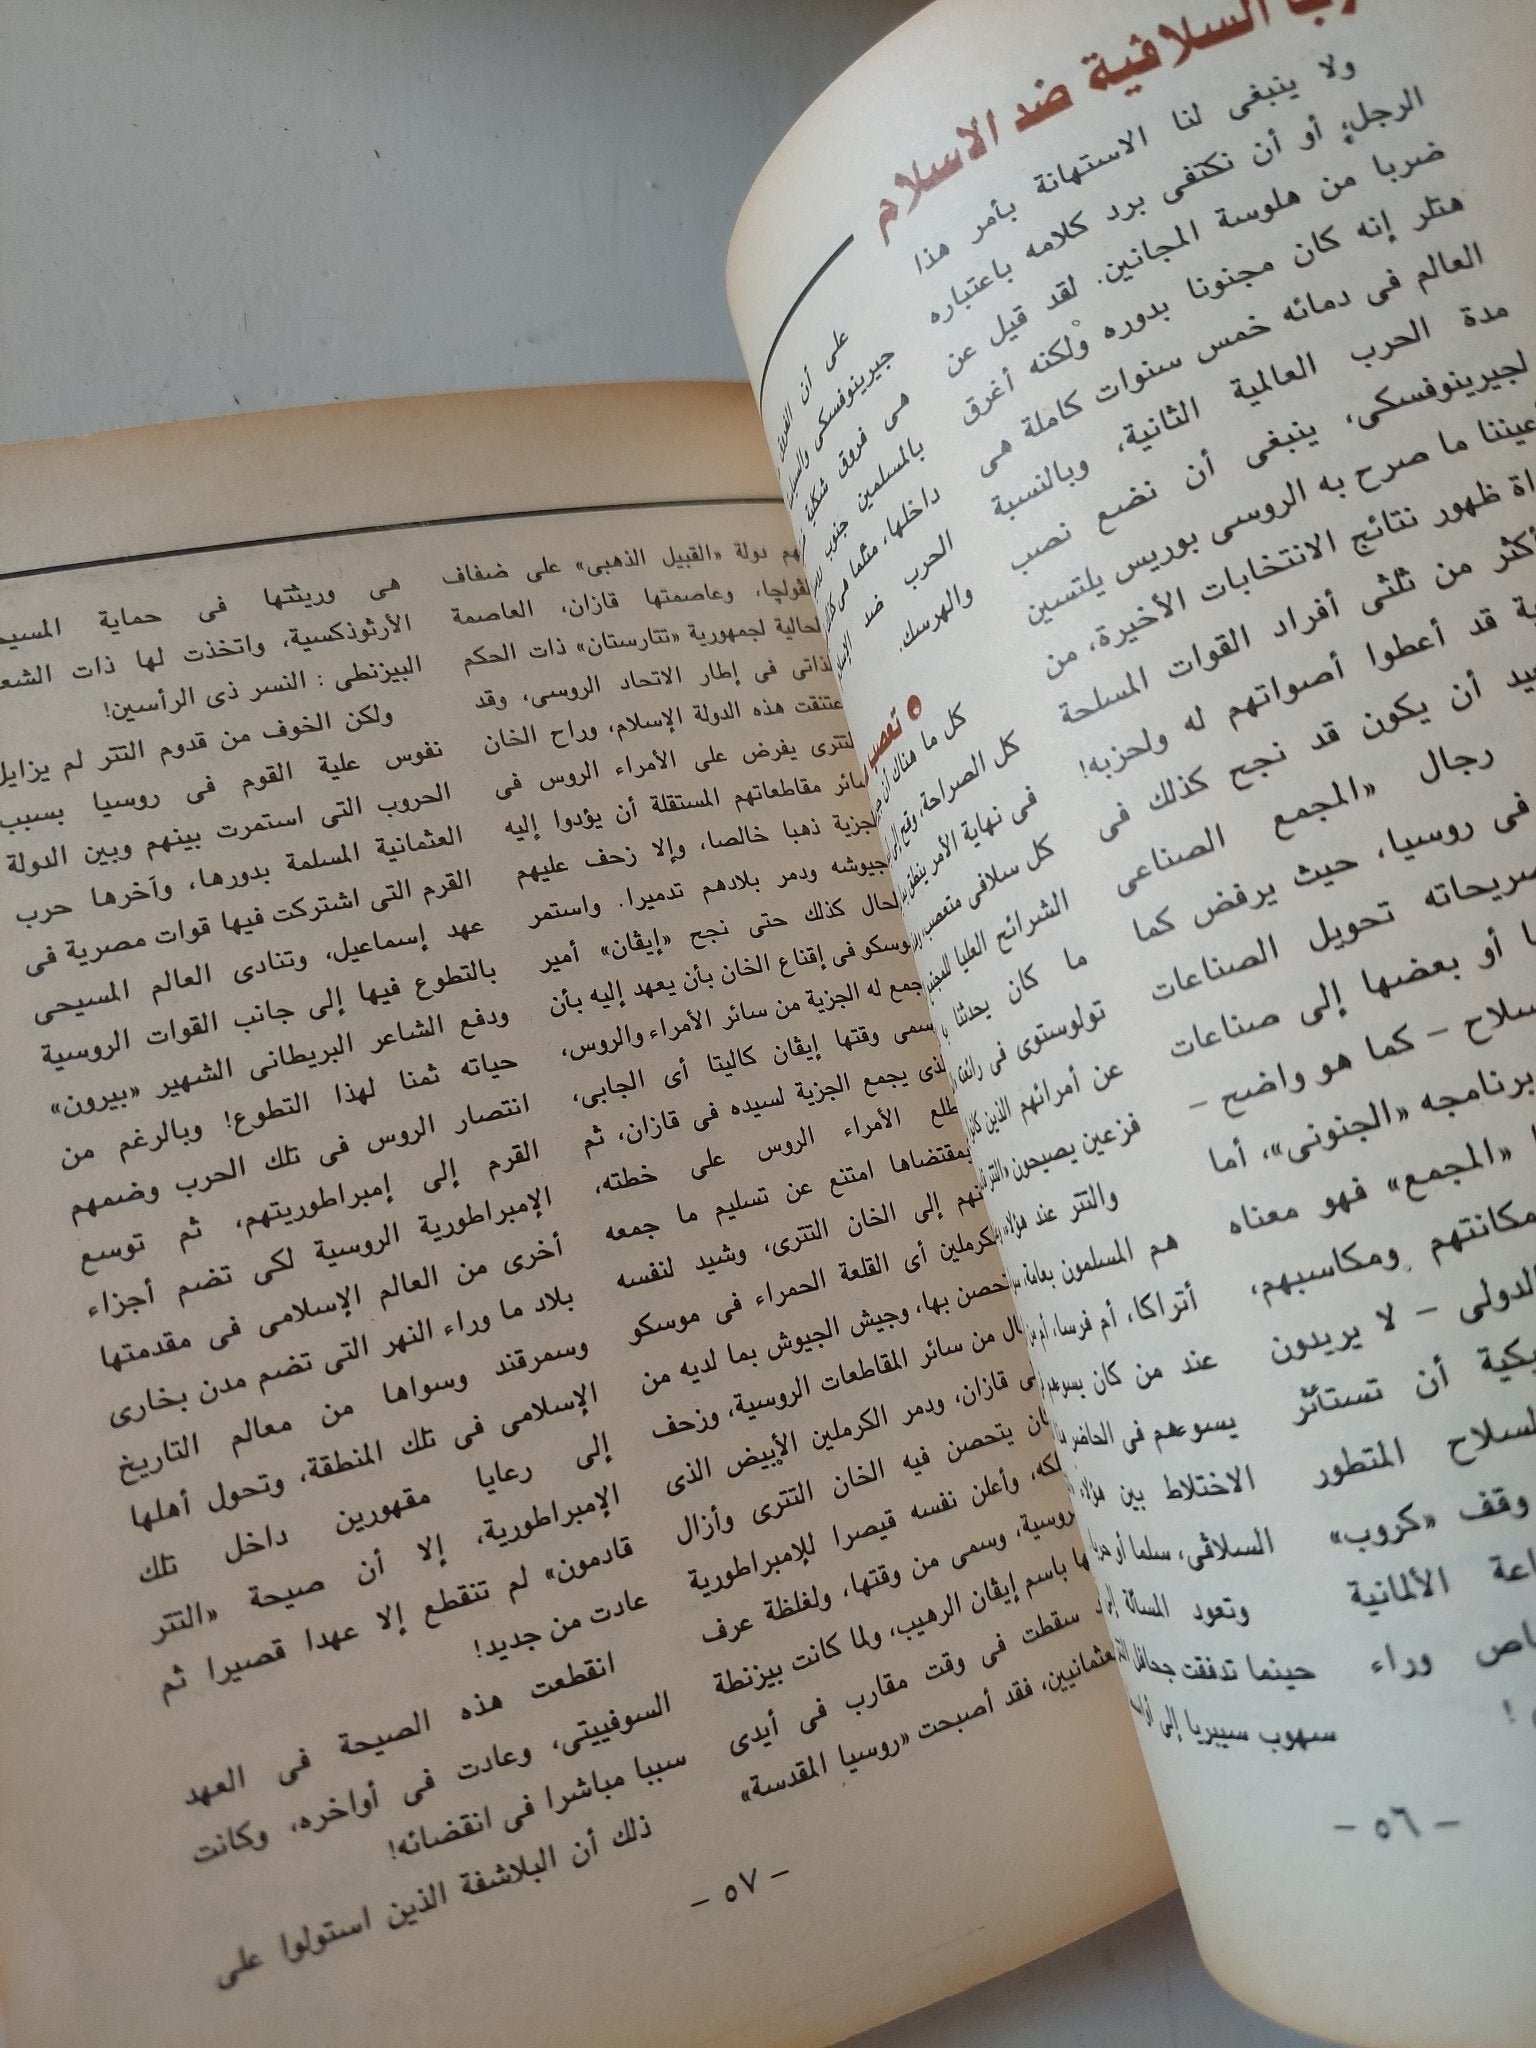 السلافية ضد الاسلام
ولا ينبغى لنا الاستهانة بأمر هذا
الرجل، أو أن نكتفى برد كلامه باعتباره
ضربا من هلوسة المجانين. لقد قيل عن
هتلر إنه كان مجنونا بدوره ولكنه أغرق
العالم فى دمائه خمس سنوات كاملة هى
مدة الحرب العالمية الثانية، وبالنسبة
لجيرينوفسكى، ينبغى أن نضع نصب
ما صرح به الروسى بوريس يلتسين
ظهور نتائج الانتخابات الأخيرة، من
أكثر من ثلثى أفراد القوات المسلحة
قد أعطوا أصواتهم له ولحزبه!
أن يكون قد نجح كذلك فى
رجال «المجمع الصناعى
فى روسيا، حيث يرفض كما
تحويل الصناعات
أو بعضها إلى صناعات
– كما هو واضح –
برنامجه «الجنونى»، أما
«المجمع» فهو معناه
مكانتهم ومكاسبهم،
الدولى – لا يريدون
أن تستأثر
السلاح المتطور
وقف «كروب»
الألمانية
وراء
!
على أن
جيرينوفسكى
هى فروق شكلية
بالمسلمين جنوب
داخلها، مثلما هى
الحرب ضد
والهرسك.
● تعصب
كل ما هناك أن
كل الصراحة،
فى نهاية الأمر ينطق
كل سلافى متعصب،
الشرائع العليا
ما كان يحدثنا
تولوستوى فى
عن أمرائهم الذين كانوا
فزعين يصيحون «التتر
والتتر عند هؤلاء
هم المسلمون بعامة،
أتراكا، أم فرسا، أم
عند من كان
يسوءهم فى الحاضر
الاختلاط بين هؤلاء
السلافى، سلما أو حربا
وتعود المسألة إلى
حينما تدفقت جحافل
سهوب سيبيريا إلى
– ٥٦ –
دولة «القبيل الذهبى» على ضفاف
وعاصمتها قازان، العاصمة
الحالية لجمهورية «تتارستان» ذات الحكم
الذاتى فى إطار الاتحاد الروسى، وقد
اعتنقت هذه الدولة الإسلام، وراح الخان
التترى يفرض على الأمراء الروس فى
سائر مقاطعاتهم المستقلة أن يؤدوا إليه
الجزية ذهبا خالصا، وإلا زحف عليهم
جيوشه ودمر بلادهم تدميرا. واستمر
الحال كذلك حتى نجح «إيڤان» أمير
موسكو فى إقناع الخان بأن يعهد إليه بأن
يجمع له الجزية من سائر الأمراء والروس،
وقتها إيڤان كاليتا أى الجابى،
الذى يجمع الجزية لسيده فى قازان، ثم
الأمراء الروس على خطته،
بمقتضاها امتنع عن تسليم ما جمعه
إلى الخان التترى، وشيد لنفسه
الكرملين أى القلعة الحمراء فى موسكو
بها، وجيش الجيوش بما لديه من
من سائر المقاطعات الروسية، وزحف
قازان، ودمر الكرملين الأبيض الذى
يتحصن فيه الخان التترى وأزال
وأعلن نفسه قيصرا للإمبراطورية
وسمى من وقتها، ولغلظة عرف
باسم إيڤان الرهيب، ولما كانت بيزنطة
سقطت فى وقت مقارب فى أيدى
العثمانيين، فقد أصبحت «روسيا المقدسة»
هى وريثتها فى حماية
الأرثوذكسية، واتخذت لها ذات
البيزنطى : النسر ذى الرأسين!
ولكن الخوف من قدوم التتر لم يزايل
نفوس علية القوم فى روسيا بسبب
الحروب التى استمرت بينهم وبين الدولة
العثمانية المسلمة بدورها، وآخرها حرب
القرم التى اشتركت فيها قوات مصرية فى
عهد إسماعيل، وتنادى العالم المسيحى
بالتطوع فيها إلى جانب القوات الروسية
ودفع الشاعر البريطانى الشهير «بيرون»
حياته ثمنا لهذا التطوع! وبالرغم من
انتصار الروس فى تلك الحرب وضمهم
القرم إلى إمبراطوريتهم، ثم توسع
الإمبراطورية الروسية لكى تضم أجزاء
أخرى من العالم الإسلامى فى مقدمتها
بلاد ما وراء النهر التى تضم مدن بخارى
وسمرقند وسواها من معالم التاريخ
الإسلامى فى تلك المنطقة، وتحول أهلها
إلى رعايا مقهورين داخل تلك
الإمبراطورية، إلا أن صيحة «التتر
قادمون» لم تنقطع إلا عهدا قصيرا ثم
عادت من جديد!
انقطعت هذه الصيحة فى العهد
السوفييتى، وعادت فى أواخره، وكانت
سببا مباشرا فى انقضائه!
ذلك أن البلاشفة الذين استولوا على
– ٥٧ –